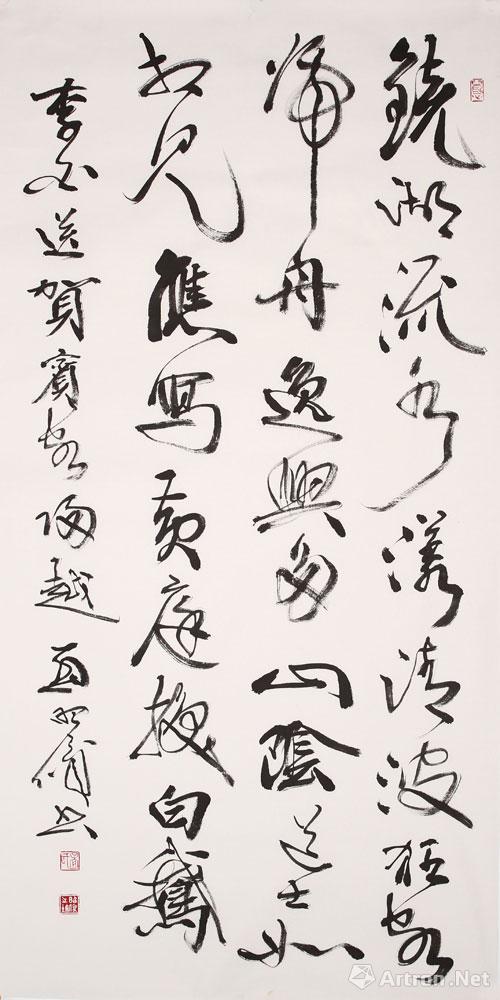 鏡湖流水漾清波狂客
歸舟逸興多山陰道士如
相見應寫黃庭換白鵝
李白送賀賓客歸越 书
Artron.Net